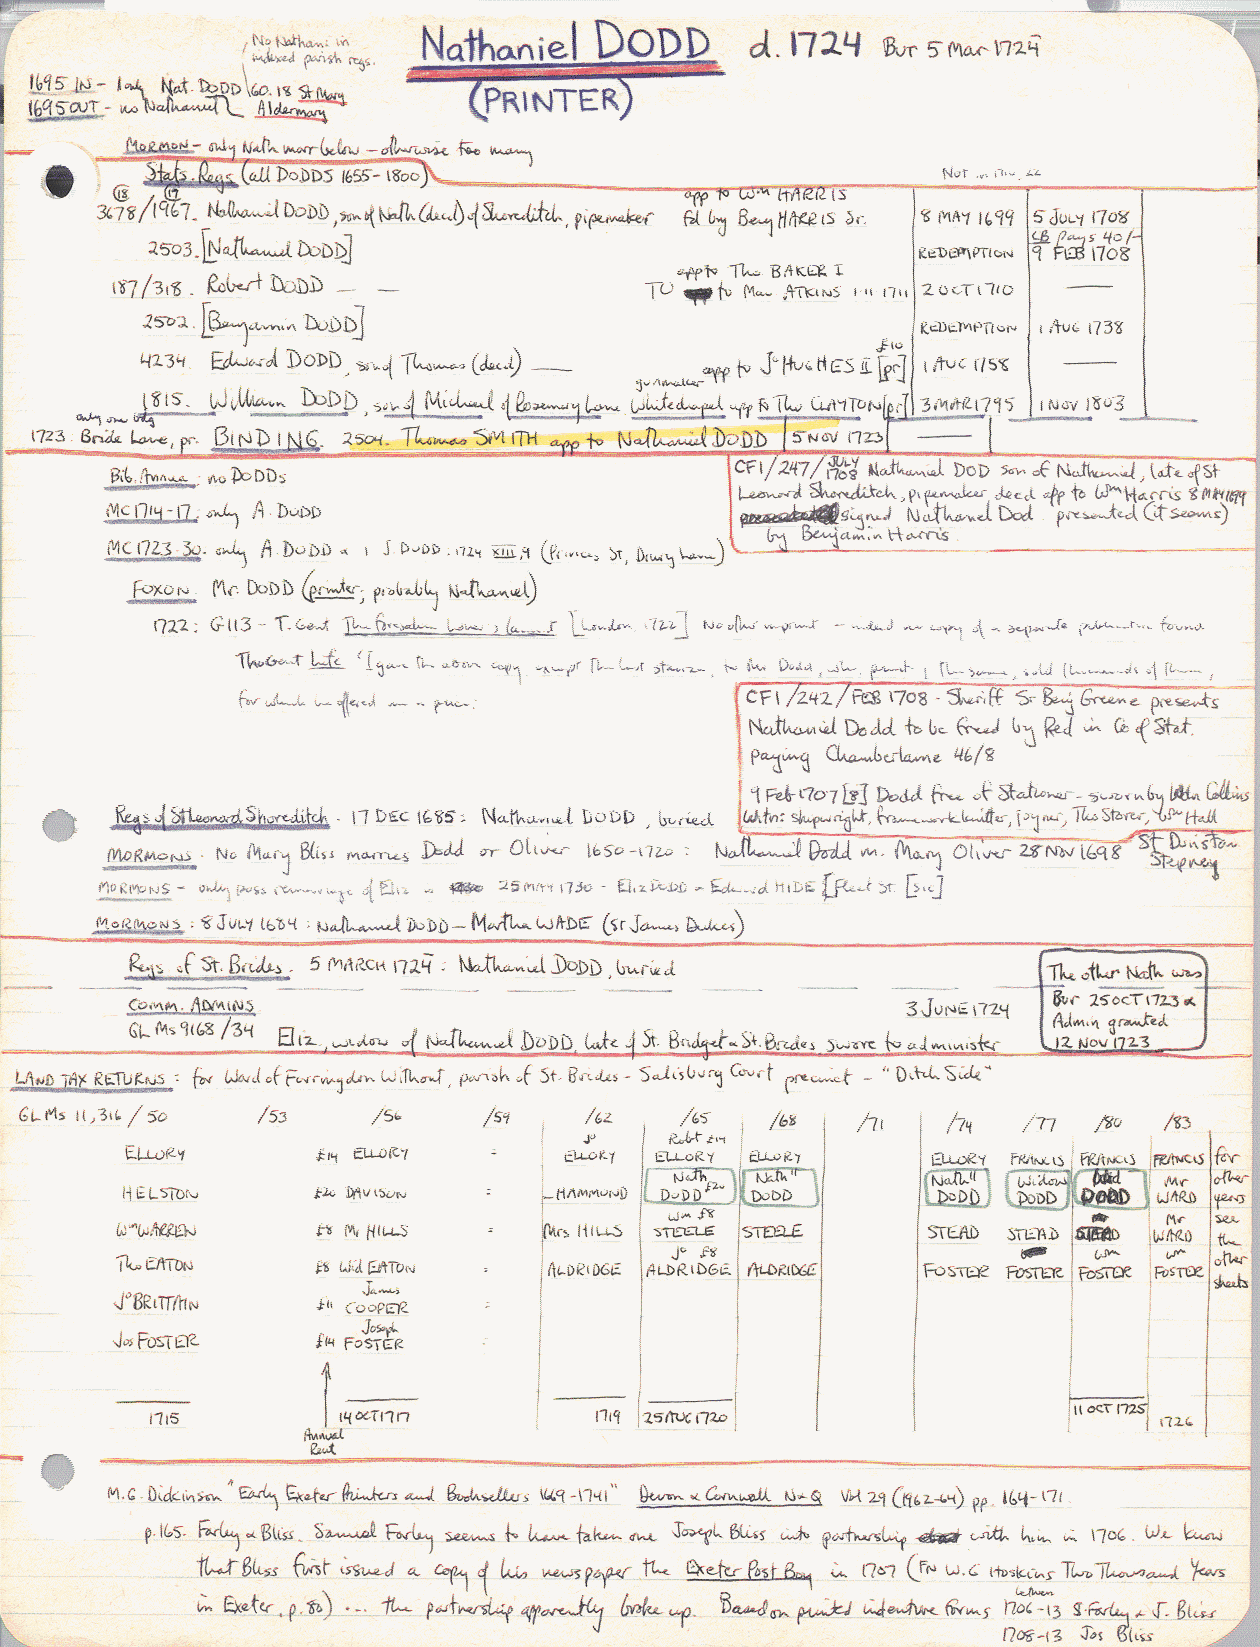 Nathaniel DODD d. 1724 Bur 5 Mar 1724
No Nathan: in
indexed parish regs.
(PRINTER)
1695 IN - 1 only Nat. DODD 60.18 St Mary
1695 OUT - no Nathaniel Aldermary
MORMON - only Nath marr below - otherwise too many
Stats. Regs (all DODDS 1655-1800)
Not in
18 17 app to Wm HARRIS
3678/1967. Nathaniel DODD, son of Nath (decd) of Shoreditch, pipemaker fd by Benj HARRIS Sr. 8 MAY 1699 5 JULY 1708
CB pays 40/-
2503. [Nathaniel DODD] REDEMPTION 9 FEB 1708
app to Tho BAKER I
187/318. Robert DODD — — TO to Maw ATKINS 1 11 1711 2 OCT 1710 —
2502. [Benjamin DODD] REDEMPTION 1 AUG 1738
£10
4234. Edward DODD, son of Thomas (decd) — app to Jo HUGHES II [pr] 1 AUG 1758 —
gunmaker
1815. William DODD, son of Michael of Rosemary Lane Whitechapel app to Tho CLAYTON [pr] 3 MAR 1795 1 NOV 1803
only one bdg
1723. Bride Lane, pr. BINDING. 2504. Thomas SMITH app to Nathaniel DODD 5 NOV 1723 —
Bib. Annua: no DODDs
MC 1714-17: only A. DODD
MC 1723-30. only A. DODD & 1 J. DODD: 1724 XIII, 9 (Princes St, Drury Lane)
CF1/247/JULY 1708 Nathaniel DOD son of Nathaniel, late of St
Leonard Shoreditch, pipemaker, decd app to Wm Harris 8 MAY 1699
signed Nathaniel Dod. presented (it seems)
by Benjamin Harris
FOXON. Mr. DODD (printer; probably Nathaniel)
1722: G113 - T. Gent The forsaken Lover's [London, 1722] No other imprint - indeed no copy of a separate publication found
Tho Gent Life 'I gave the above copy except the last stanza, to Mr Dodd, who printing the same, sold thousands of them,
for which he offered me a price.
CF1/242/FEB 1708 - Sheriff Sr Benj Greene presents
Nathaniel Dodd to be freed by Red in Co of Stat.
paying Chamberlaine 46/8
9 Feb 1707[8] Dodd free of Stationer - sworn by Wm Collins
Witn: shipwright, framework knitter, joyner, Tho Storer, Wm Hall
Regs of St Leonard Shoreditch. 17 DEC 1685: Nathaniel DODD, buried
MORMONS. No Mary Bliss marries Dodd or Oliver 1650-1720: Nathaniel Dodd m. Mary Oliver 28 NOV 1698 St Dunstan
Stepney
MORMONS - only poss remarriage of Eliz is 25 MAY 1730 - Eliz DODD & Edward HIDE [Fleet St. [sic]
MORMONS: 8 JULY 1684: Nathaniel DODD - Martha WADE (St James Dukes)
Regs of St. Brides. 5 MARCH 1724: Nathaniel DODD, buried
The other Nath was
Bur 25 OCT 1723 &
Admin granted
12 NOV 1723
COMM. ADMINS 3 JUNE 1724
GL Ms 9168/34 Eliz, widow of Nathaniel DODD, late of St. Bridget & St. Brides swore to administer
LAND TAX RETURNS: for Ward of Farringdon Without, parish of St. Brides - Salisbury Court precinct - "Ditch Side"
GL Ms 11,316/50 /53 /56 /59 /62 /65 /68 /71 /74 /77 /80 /83
Jo Robt £14
ELLORY £14 ELLORY = ELLORY ELLORY ELLORY ELLORY FRANCIS FRANCIS FRANCIS for
Nath £20 Nathll Nathll Widow Wid Mr other
HELSTON £20 DAVISON = - HAMMOND DODD DODD DODD DODD DODD WARD years
Wm £8 Mr see
Wm WARREN £8 Mr HILLS Mrs HILLS STEELE STEELE STEAD STEAD STEAD WARD the
Jo £8 Wm Wm other
Tho EATON £8 Wid EATON = ALDRIDGE ALDRIDGE ALDRIDGE FOSTER FOSTER FOSTER FOSTER sheets
James
Jo BRITTAIN £11 COOPER =
Joseph
Jos FOSTER £14 FOSTER
1715 14 OCT 1717 1719 25 AUG 1720 11 OCT 1725 1726
Annual
Rent
M.G. Dickinson "Early Exeter Printers and Booksellers 1669-1741" Devon & Cornwall N&Q Vol 29 (1962-64) pp. 164-171.
p.165. Farley & Bliss. Samuel Farley seems to have taken one Joseph Bliss into partnership with him in 1706. We know
that Bliss first issued a copy of his newspaper the Exeter Post Boy in 1707 (FN W.G Hoskins Two Thousand Years
in Exeter, p.80) ... the partnership apparently broke up. Based on printed indenture forms between 1706-13 S. Farley & J. Bliss
1708-13 Jos Bliss